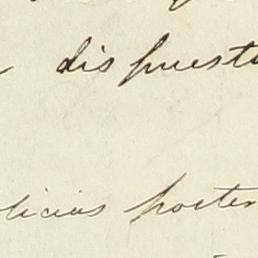 dispuest
licias poster